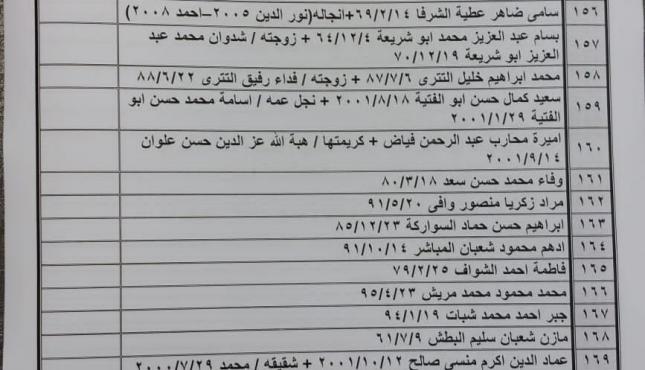 ١٥٦ سامى ضاهر عطية الشرفا ٦٩/٢/١٤+انجاله(نور الدين ٢٠٠٥–احمد ٢٠٠٨)
١٥٧ بسام عبد العزيز محمد ابو شريعة ٦٤/١٢/٤ + زوجته / شدوان محمد عبد
العزيز ابو شريعة ٧٠/١٢/١٩
١٥٨ محمد ابراهيم خليل التترى ٨٧/٧/٦ + زوجته / فداء رفيق التترى ٨٨/٦/٢٢
١٥٩ سعيد كمال حسن ابو الفتية ٢٠٠١/٨/١٨ + نجل عمه / اسامة محمد حسن ابو
الفتية ٢٠٠١/١/٢٩
١٦٠ اميرة محارب عبد الرحمن فياض + كريمتها / هبة الله عز الدين حسن علوان
٢٠٠١/٩/١٤
١٦١ وفاء محمد حسن سعد ٨٠/٣/١٨
١٦٢ مراد زكريا منصور وافى ٩١/٥/٢٠
١٦٣ ابراهيم حسن حماد السواركة ٨٥/١٢/٢٣
١٦٤ ادهم محمود شعبان المباشر ٩١/١٠/١٤
١٦٥ فاطمة احمد الشواف ٧٩/٢/٢٥
١٦٦ محمد محمود محمد مريش ٩٥/٤/٢٣
١٦٧ جبر احمد محمد شبات ٩٤/١/١٩
١٦٨ مازن شعبان سليم البطش ٦١/٧/٩
١٦٩ عماد الدين اكرم منسى صالح ٢٠٠١/١٠/١٢ + شقيقه / محمد ٢٠٠٠/٧/٢٩